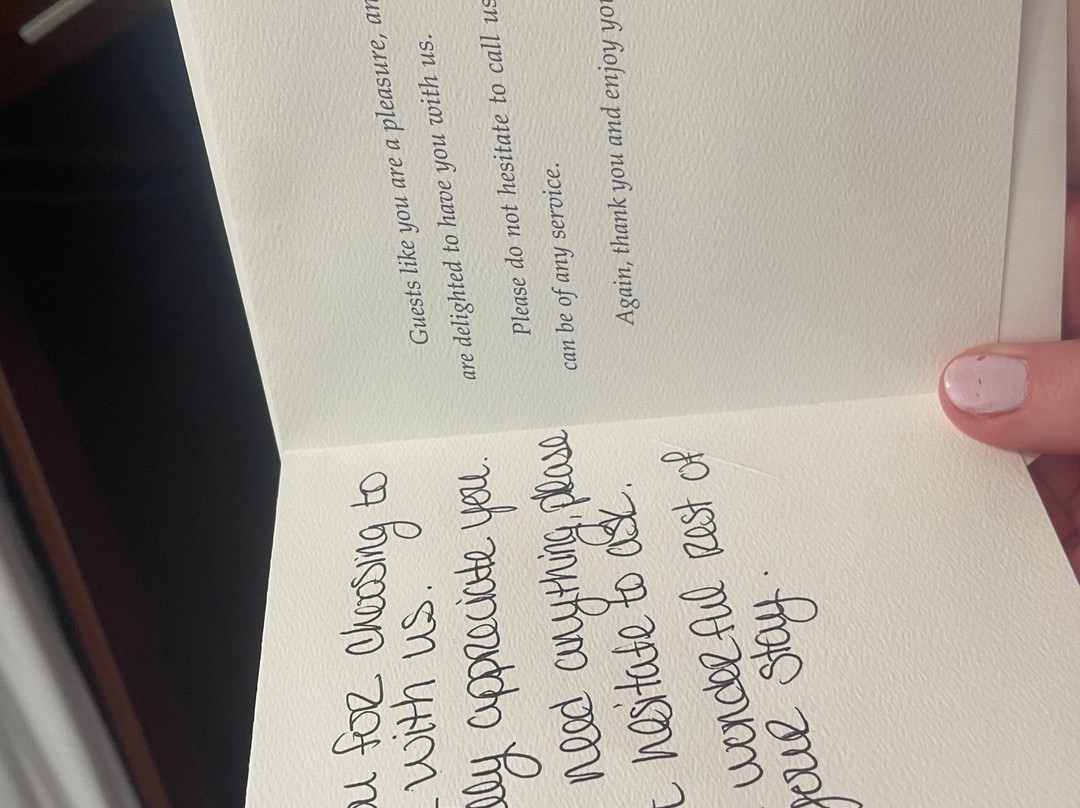 for choosing to
with us.
appreciate you.
need anything, please
hesitate to ask.
wonderful rest of
your stay.
Guests like you are a pleasure,
are delighted to have you with us.
Please do not hesitate to call us
can be of any service.
Again, thank you and enjoy